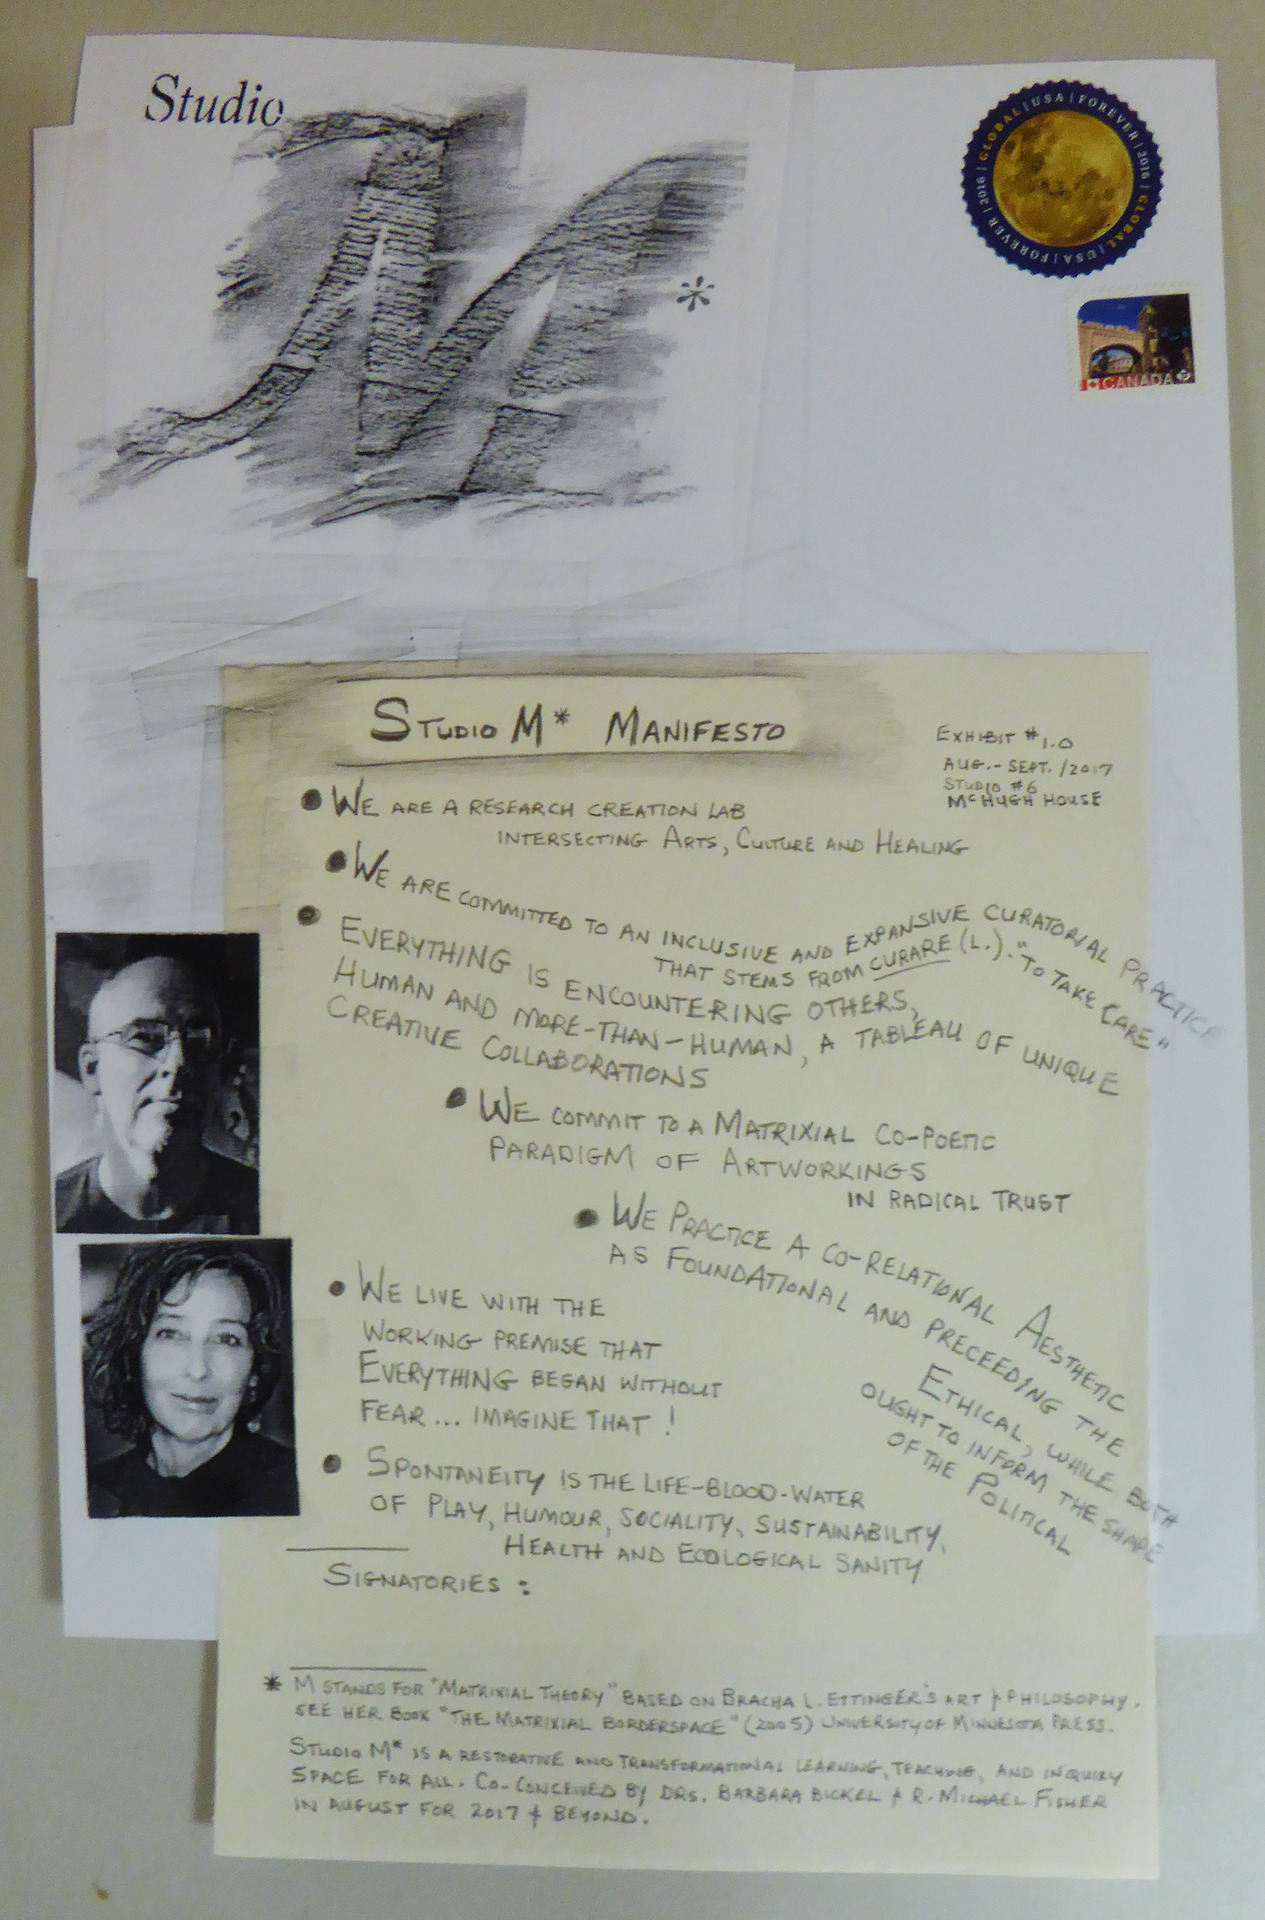 Studio
M
*
GLOBAL | USA | FOREVER | 2016 | GLOBAL | USA | FOREVER | 2016 |
CANADA P
STUDIO M* MANIFESTO
EXHIBIT #1.0
AUG.-SEPT./2017
STUDIO #6
McHUGH HOUSE
● WE ARE A RESEARCH CREATION LAB
INTERSECTING ARTS, CULTURE AND HEALING
● WE ARE COMMITTED TO AN INCLUSIVE AND EXPANSIVE CURATORIAL PRACTICE
THAT STEMS FROM CURARE (L.). "TO TAKE CARE"
● EVERYTHING IS ENCOUNTERING OTHERS,
HUMAN AND MORE-THAN-HUMAN, A TABLEAU OF UNIQUE
CREATIVE COLLABORATIONS
● WE COMMIT TO A MATRIXIAL CO-POETIC
PARADIGM OF ARTWORKINGS
IN RADICAL TRUST
● WE PRACTICE A CO-RELATIONAL AESTHETIC
AS FOUNDATIONAL AND PRECEEDING THE
ETHICAL, WHILE BOTH
OUGHT TO INFORM THE SHAPE
OF THE POLITICAL
● WE LIVE WITH THE
WORKING PREMISE THAT
EVERYTHING BEGAN WITHOUT
FEAR... IMAGINE THAT !
● SPONTANEITY IS THE LIFE-BLOOD-WATER
OF PLAY, HUMOUR, SOCIALITY, SUSTAINABILITY,
HEALTH AND ECOLOGICAL SANITY
SIGNATORIES :
* M STANDS FOR "MATRIXIAL THEORY" BASED ON BRACHA L. ETTINGER'S ART & PHILOSOPHY.
SEE HER BOOK "THE MATRIXIAL BORDERSPACE" (2005) UNIVERSITY OF MINNESOTA PRESS.
STUDIO M* IS A RESTORATIVE AND TRANSFORMATIONAL LEARNING, TEACHING, AND INQUIRY
SPACE FOR ALL. CO-CONCEIVED BY DRS. BARBARA BICKEL & R. MICHAEL FISHER
IN AUGUST FOR 2017 & BEYOND.